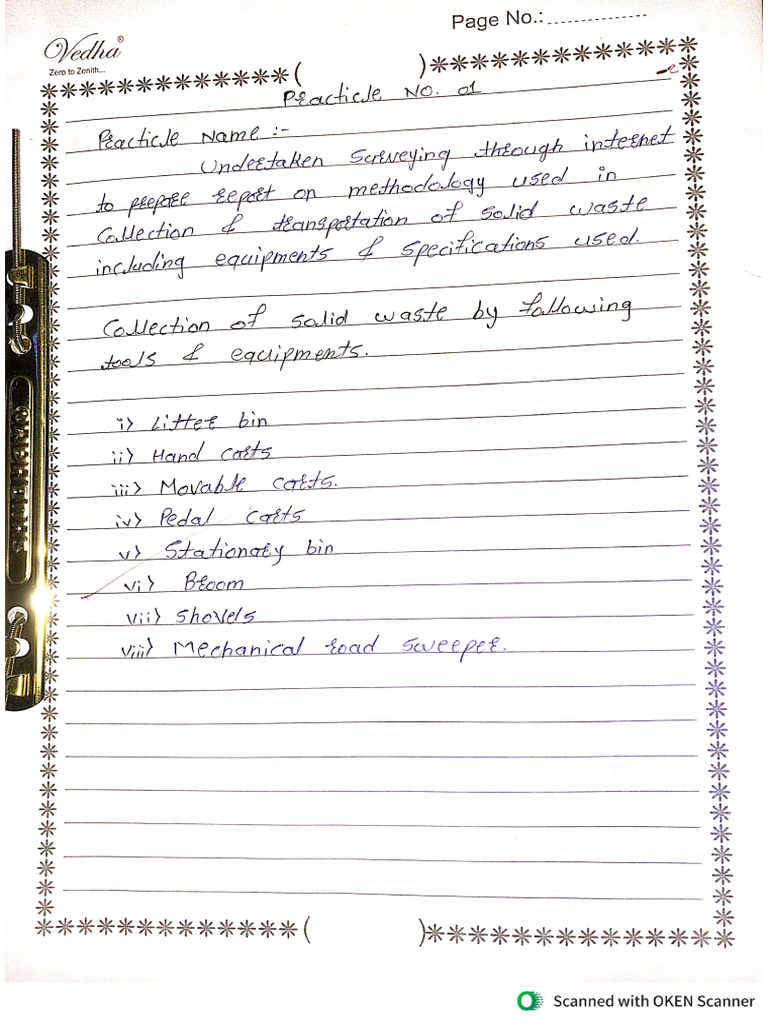 Page No.:
Vedha®
Zero to Zenith...
Practicle No. 01
Practicle Name :-
Undertaken Surveying through internet
to prepare report on methodology used in
Collection & transportation of solid waste
including equipments & specifications used.
Collection of solid waste by following
tools & equipments.
i> Litter bin
ii> Hand carts
iii> Movable carts.
iv> Pedal carts
v> Stationary bin
vi> Broom
vii> Shovels
viii> Mechanical road sweeper.
Scanned with OKEN Scanner